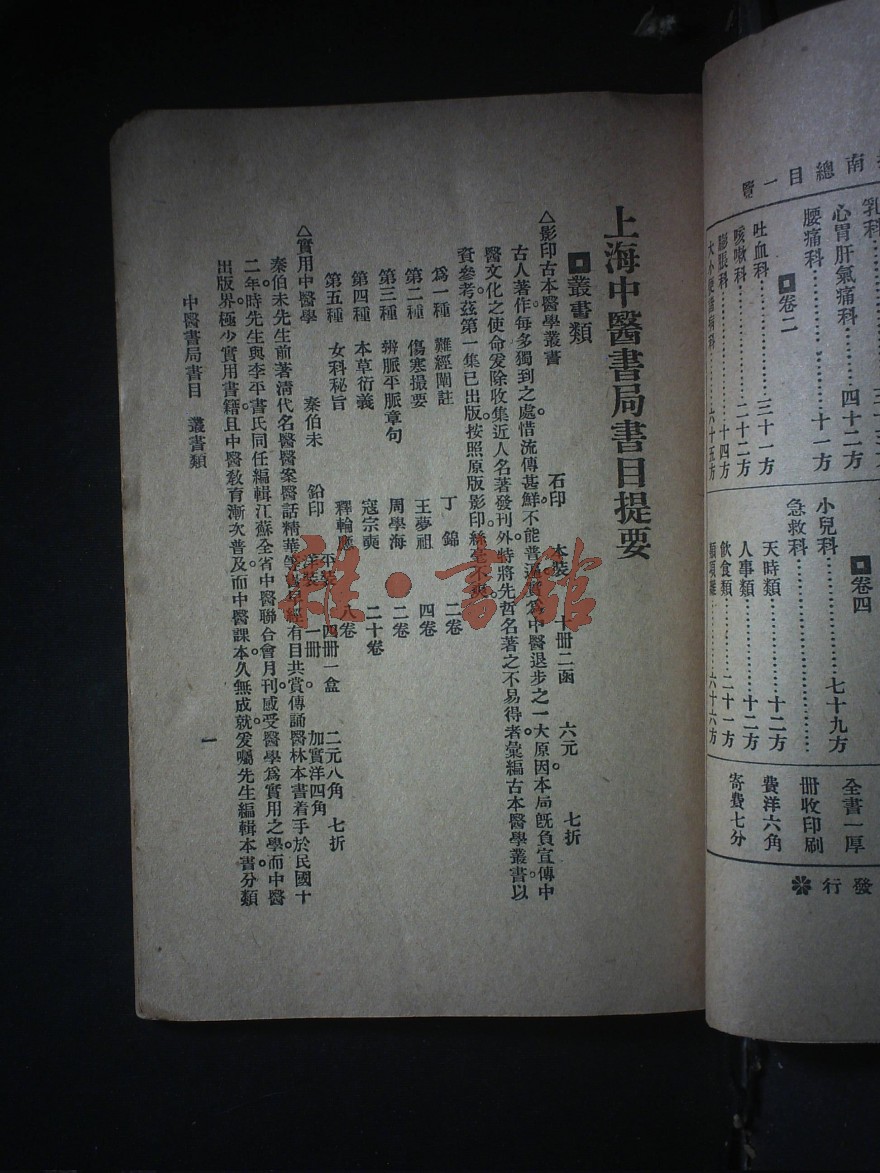 南總目一覽
乳科
心胃肝氣痛科……四十二方
腰痛科……十一方
卷二
吐血科……三十一方
咳嗽科……二十二方
膨脹科……十四方
六十五方
卷四
小兒科……七十九方
急救科
天時類……十二方
人事類……十二方
飲食類……二十一方
六十六方
全書一厚
冊收印刷
費洋六角
寄費七分
發行
上海中醫書局書目提要
叢書類
△影印古本醫學叢書 石印 本裝 十冊二函 六元 七折
古人著作每多獨到之處。惜流傳甚鮮。不能普遍。實爲中醫退步之一大原因。本局既負宣傳中
醫文化之使命。爰除收集近人名著發刊外。特將先哲名著之不易得者。彙編古本醫學叢書。以
資參考。茲第一集已出版。按照原版影印。絲毫不爽。
爲一種 難經闡註 丁錦 二卷
第二種 傷寒撮要 王夢祖 四卷
第三種 辨脈平脈章句 周學海 二卷
第四種 本草衍義 寇宗奭 二十卷
第五種 女科秘旨 釋輪應 八卷
△實用中醫學 秦伯未 鉛印 平裝 四冊一盒 二元八角 七折
洋裝 一冊 加實洋四角
秦伯未先生前著清代名醫醫案醫話精華等書。早經有目共賞。傳誦醫林。本書着手於民國十
二年。時先生與李平書氏同任編輯江蘇全省中醫聯合會月刊。感受醫學爲實用之學。而中醫
出版界極少實用書籍。且中醫教育漸次普及。而中醫課本久無成就。爰囑先生編輯本書。分類
中醫書局書目 叢書類
一
雅·書館